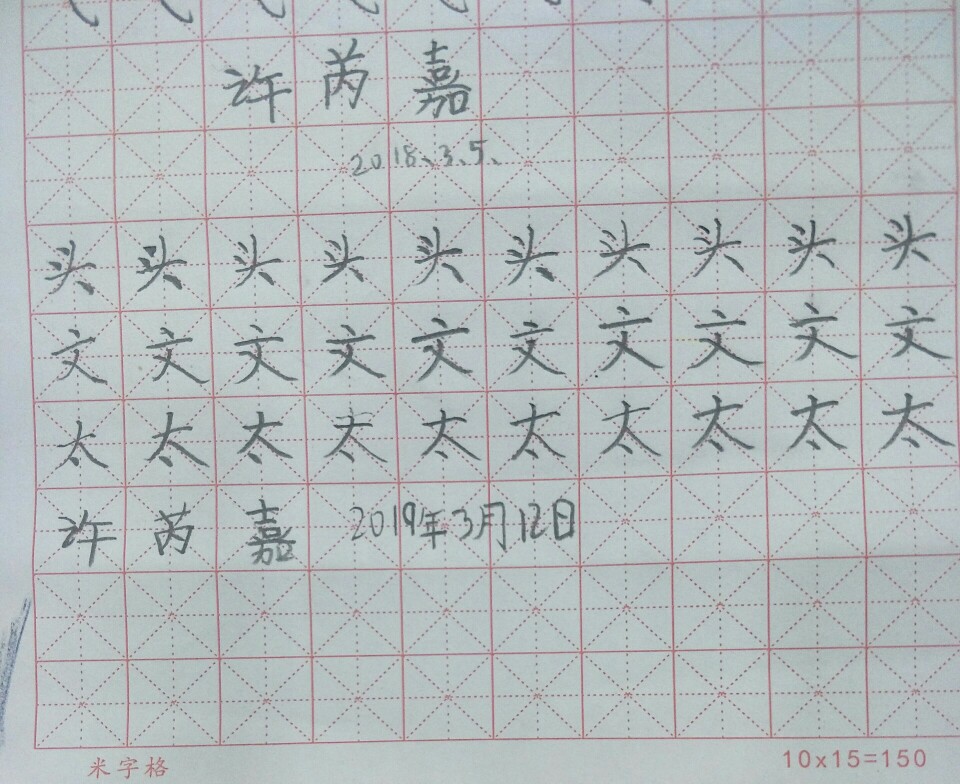 许芮嘉
2018、3、5、
头头头头头头头头头头
文文文文文文文文文文
太太太太太太太太太太
许芮嘉 2019年3月12日
米字格 10x15=150